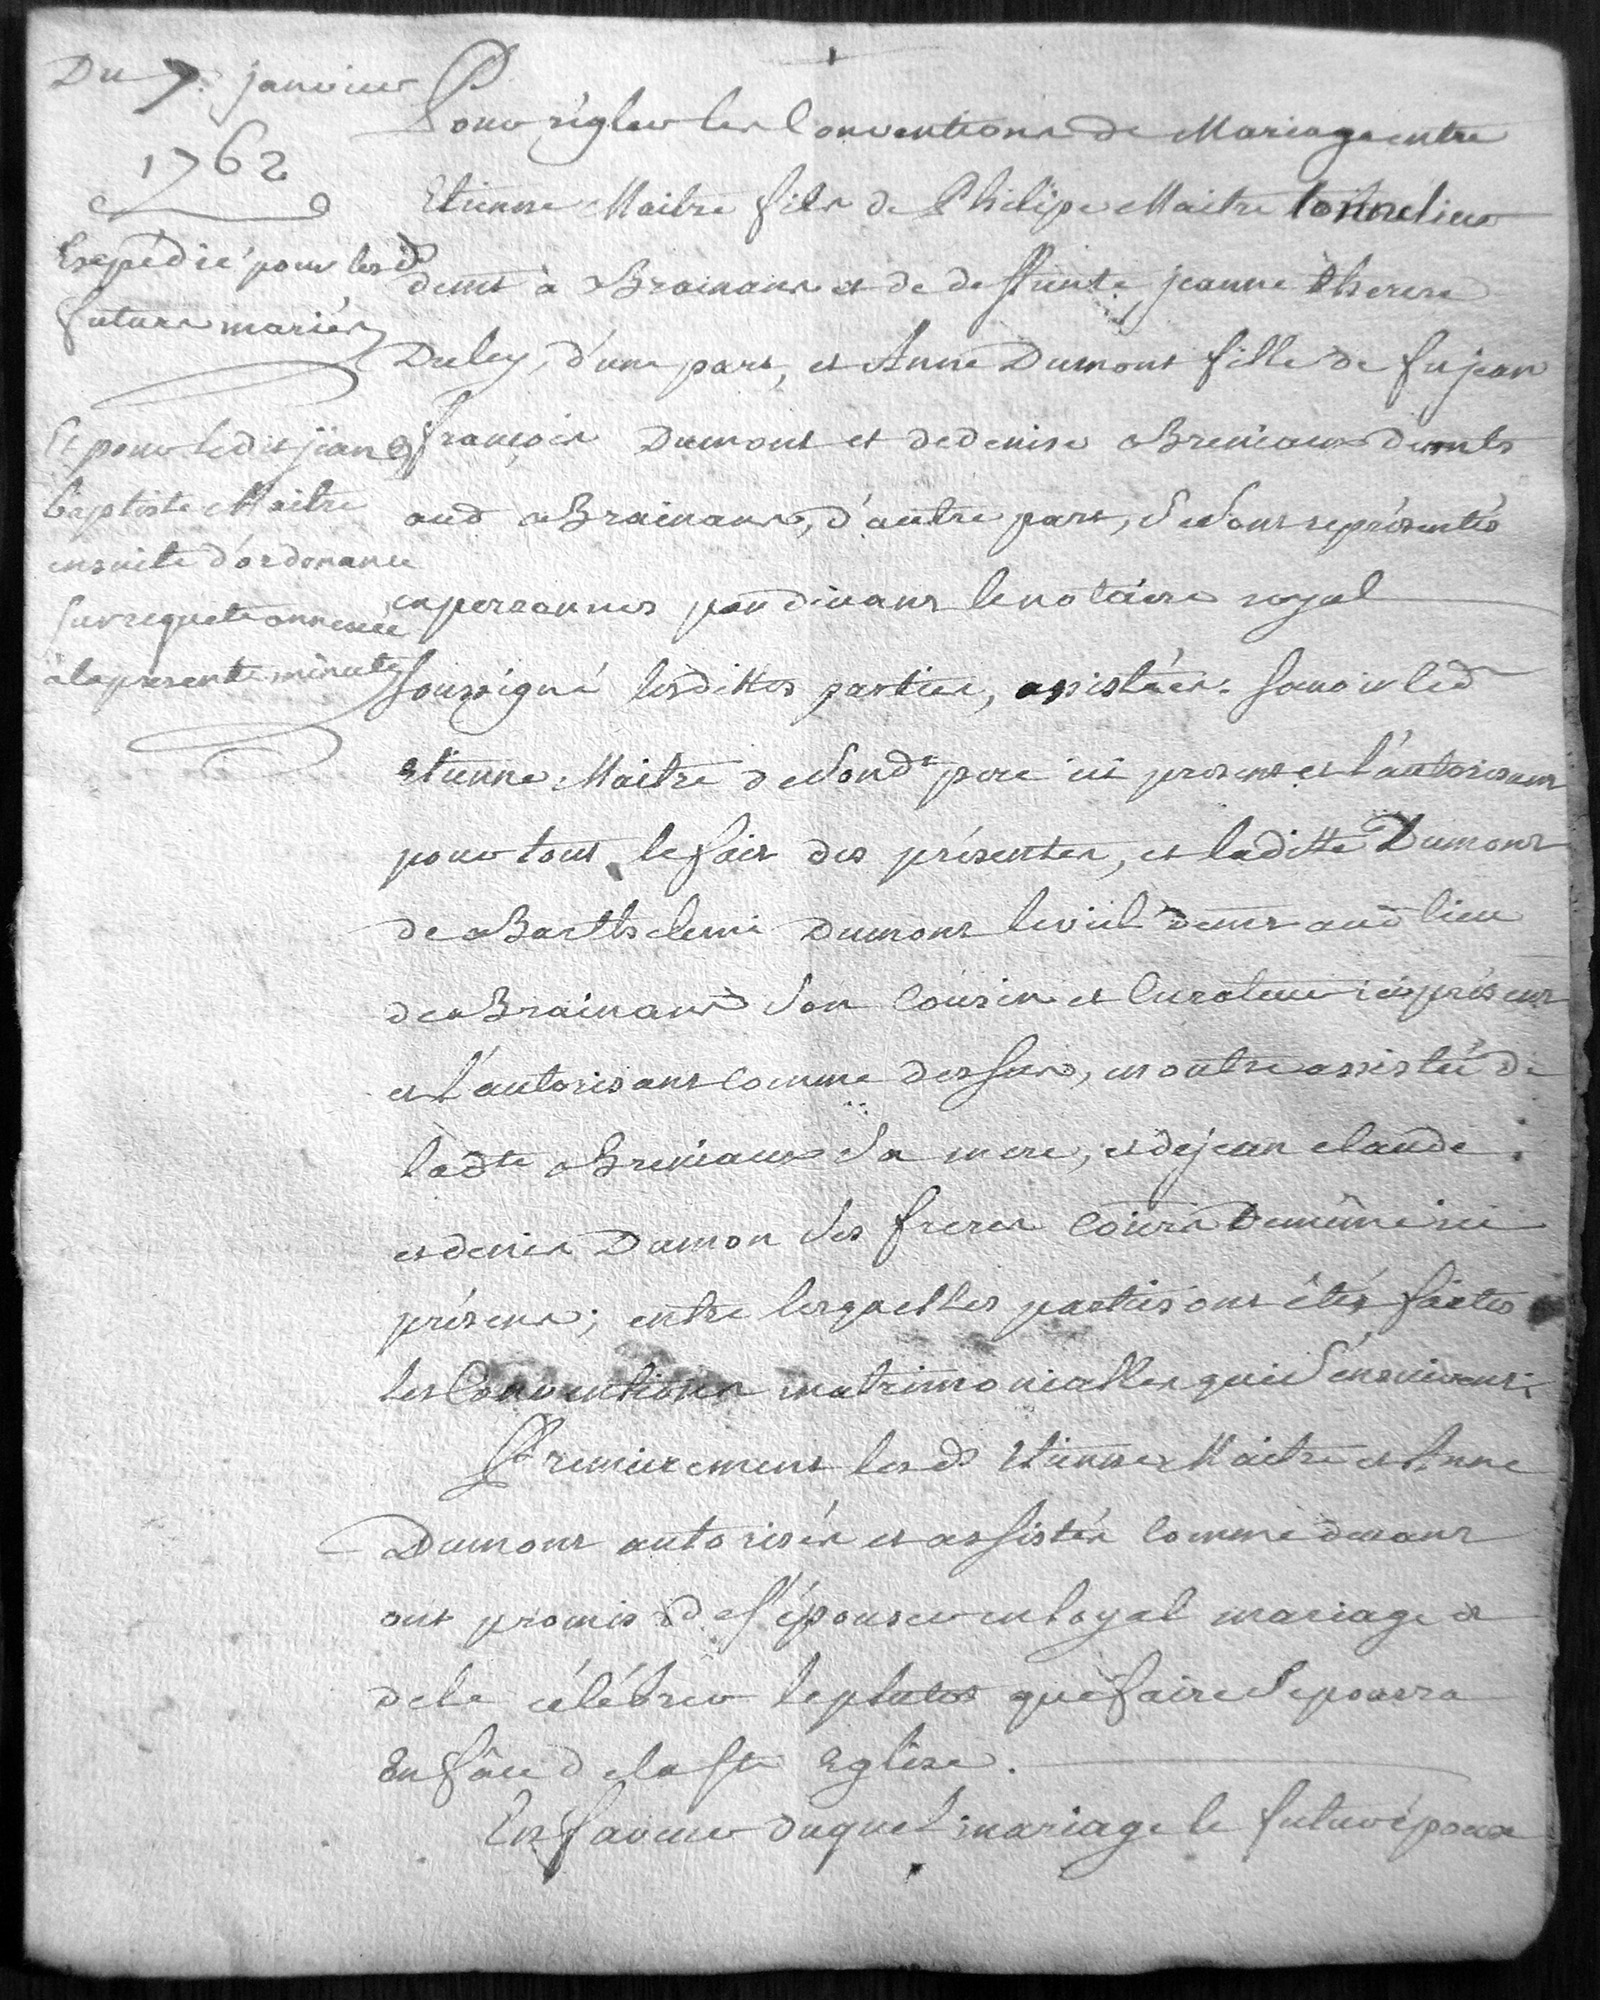 Du 7. janvier
1762
Expédié pour lesd
futurs mariés
Et pour ledit jean
baptiste Maitre
ensuite d'ordonance
sur requete annexée
a la presente minute
Pour régler les Conventions de Mariage entre
Etienne Maitre fils de Philipe Maitre tonnelier
demt à Brainans et de deffunte jeanne therese
d'une part, et Anne Dumont fille de fu jean
françois Dumont et de denise Breniaux demts
aud Brainans, d'autre part, se sont représentés
en personnes pardevant le notaire royal
soussigné lesdittes parties, assistées: savoir led
Etienne Maitre de sondt pere ici present et l'autorisant
pour tout le fait des présentes, et laditte Dumont
de Barthelemi Dumont le viel demt aud lieu
de Brainans son Cousin et Curateur ici présent
et l'autorisant comme dessus, en outre assistée de
ladte Breniaux sa mere, et de jean claude
et denis Dumon ses freres ici
présens; entre lesquelles parties ont étés faites
les Conventions matrimonialles qui s'ensuivent:
Premierement lesd Etienne Maitre et Anne
Dumont autorisés et assistés comme devant
ont promis de s'épouser en loyal mariage et
de le célébrer le plutot que faire se pourra
En fâce de la ste Eglise.
En faveur duquel mariage le futur époux